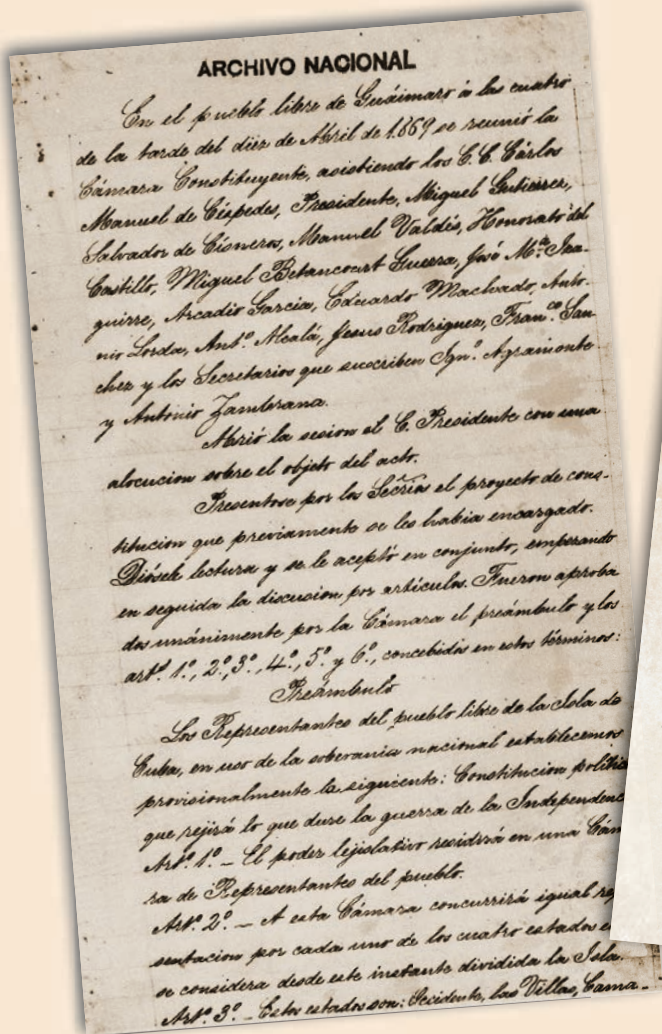 ARCHIVO NACIONAL
En el pueblo libre de Guáimaro á las cuatro
de la tarde del diez de Abril de 1.869 se reunió la
Cámara Constituyente, asistiendo los C.C. Cárlos
Manuel de Céspedes, Presidente, Miguel Gutierrez,
Salvador de Cisneros, Manuel Valdés, Honorato del
Castillo, Miguel Betancourt Guerra, José Mª Iza-
guirre, Arcadio Garcia, Eduardo Machado, Anto-
nio Lorda, Antº Alcalá, Jesus Rodriguez, Franco San-
chez y los Secretarios que suscriben Ignº Agramonte
y Antonio Zambrana.
Abrió la sesion el C. Presidente con una
alocucion sobre el objeto del acto.
Presentose por los Secrios el proyecto de cons-
titucion que previamente se les habia encargado.
Diósele lectura y se le aceptó en conjunto, empezando
en seguida la discusion por artículos. Fueron aproba
dos unánimente por la Cámara el preámbulo y los
artº 1º, 2º, 3º, 4º, 5º y 6º, concebidos en estos términos:
Preámbulo
Los Representantes del pueblo libre de la Isla de
Cuba, en uso de la soberania nacional establecemos
provisionalmente la siguiente: Constitucion politic
que rejirá lo que dure la guerra de la Independenc
Artº 1º — El poder lejislativo residirá en una Cám
ra de Representantes del pueblo.
Artº 2º — A esta Cámara concurrirá igual rep
sentacion por cada uno de los cuatro estados e
se considera desde este instante dividida la Isla.
Artº 3º — Estos estados son: Occidente, las Villas, Cama-